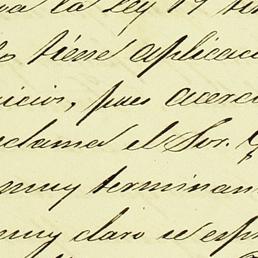 la Ley 19
tiene aplicaci
icios, pues acerca
clama el Sor. G
muy terminan
muy claro se esp